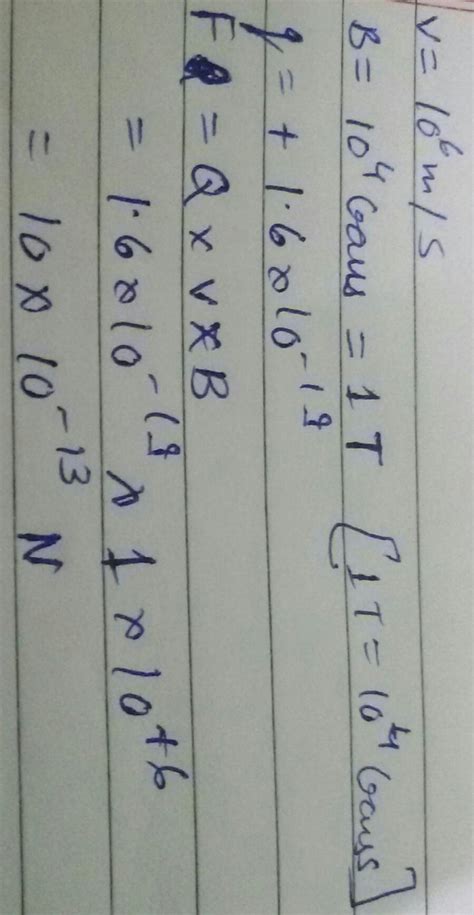 v = 10⁶ m/s
B = 10⁴ Gaus = 1 T [1 T = 10⁴ Gaus]
q = + 1.6 x 10⁻¹⁹
F = Q x v x B
= 1.6 x 10⁻¹⁹ x 1 x 10⁺⁶
= 10 x 10⁻¹³ N